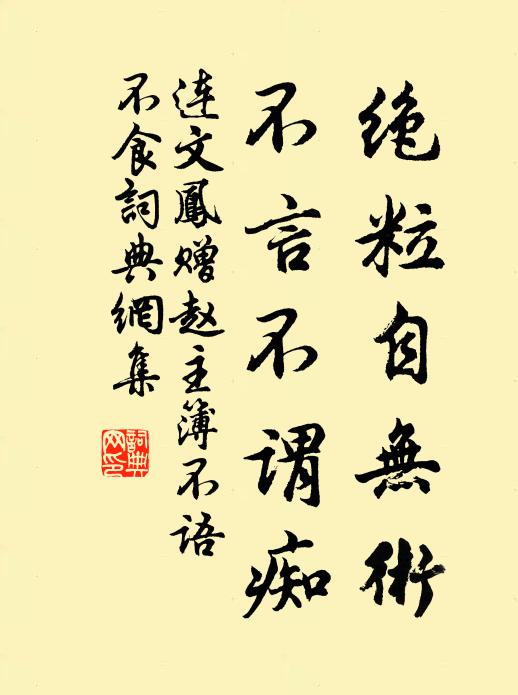 绝粒自無術
不言不謂痴
连文鳳赠赵主簿不语
不食詞典網集
詞典網印